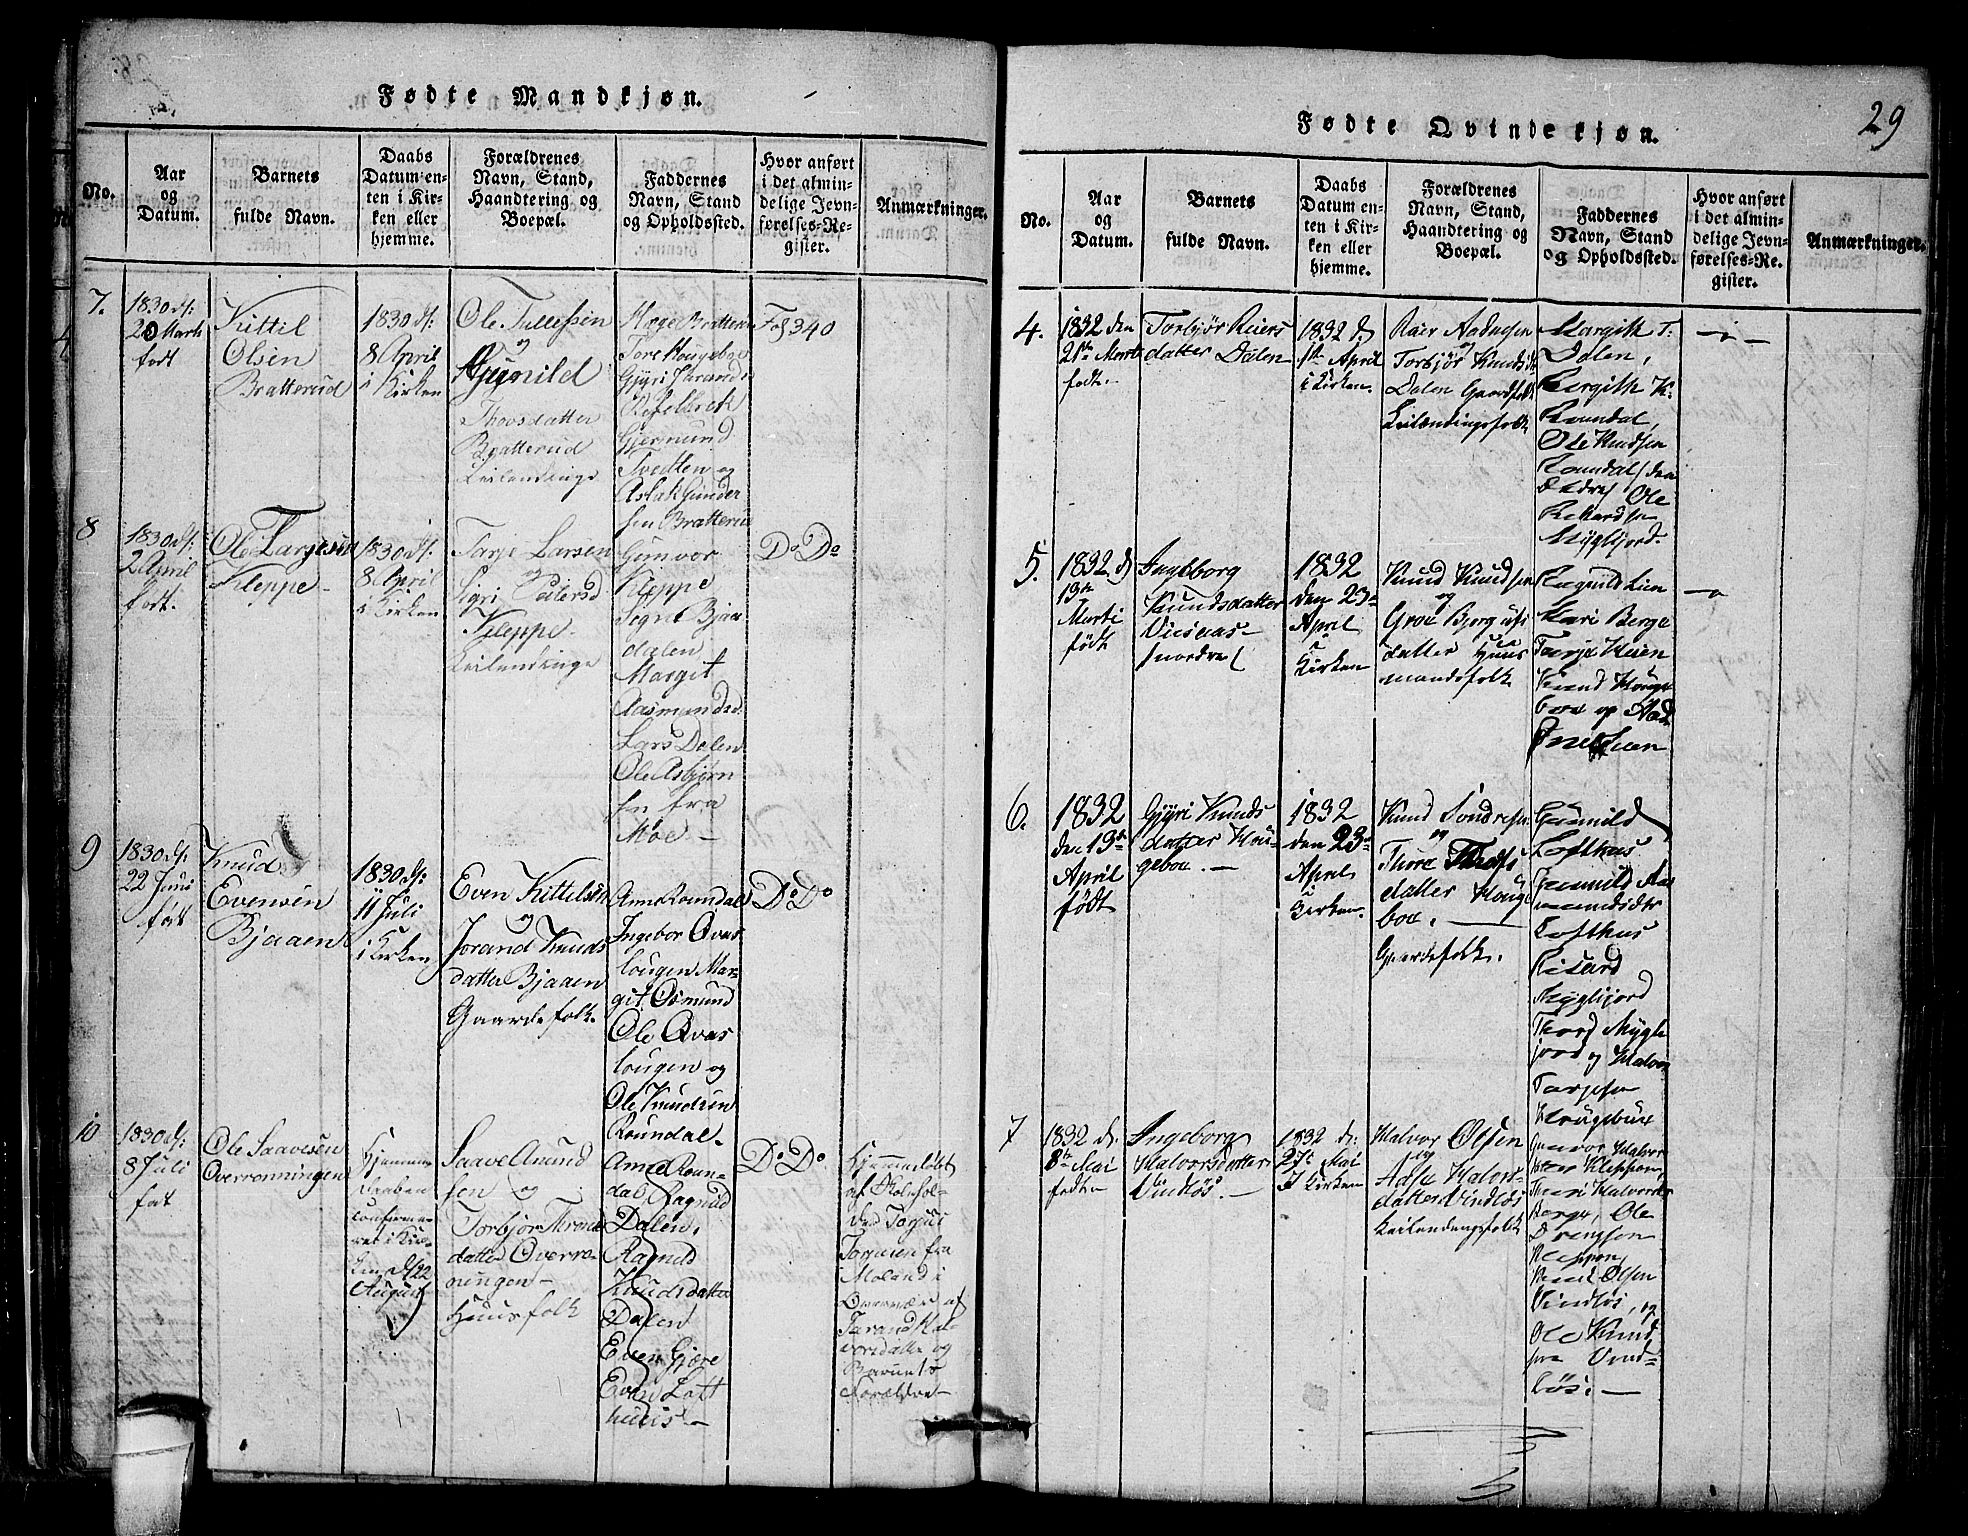 Fødte Mandkjøn.
No.
Aar
og
Datum.
Barnets
fulde Navn.
Daabs
Datum en-
ten i Kir-
ken eller
hjemme.
Forældrenes
Navn, Stand,
Haandtering og
Boepæl.
Faddernes
Navn, Stand
og Opholdssted.
Hvor anført
i det almin-
delige Jevn-
førelses-Re-
gister.
Anmærkninger.
7.
1830 d:
20 Marti
født
Kittil
Olsen
Bratterud
1830 d:
8 April
i Kirken
Ole Tullefsen
og
Gunild
Thorsdatter
Bratterud
Leilendinge
Hæge Bratterud
Tore Hougeboe
Gjyri
Gjermund
Tvedten og
Aslak Gunder
sen Bratterud
Fol 340
8
1830 d:
2 April
født.
Ole Tarjesen
Kleppe
1830 d:
8 April
i Kirken
Tarje Larsen
og
Sigri Pedersd
Kleppe
Leilendinge
Gunvor
Kleppe
Signe Bjaa
dalen
Margit
Aasmundsd.
Lars Dalen
Ole Asbjørn
sen fra
Moe —
Do Do
9
1830 d:
22 Juni
født
Knud
Evensen
Bjaaen
1830 d:
11 Juli
i Kirken
Even Kittelsen
og
Jorand Knuds
datter Bjaaen
Gaardefolk.
Anne Roundal
Ingebor Qvas
lougen Mar-
git Osmund
Ole Qvas
lougen og
Ole Knudsen
Roundal.
Do Do
10
1830 d:
8 Juli
født
Ole Saavesen
Overronningen
Hjemme
Daaben
confirme-
ret i Kir
ken d 22
August
Saave Amund
sen og
Torbjør Thrond
datter Overro-
ningen —
Huusfolk
Anne Roun-
dal, Ragnild
Dalen,
Ragnild
Knudsdatter
Dalen
Even Gjære
Even Loft
huus —
Do Do
Hjemmedøbt
af Skolehol-
der Torjus
Torjusen fra
Moland i
Overvær af
og
Barnets
Forældre —
29
Fødte Qvindekjøn.
No.
Aar
og
Datum.
Barnets
fulde Navn.
Daabs
Datum en-
ten i Kir-
ken eller
hjemme.
Forældrenes
Navn, Stand,
Haandtering og
Boepæl.
Faddernes
Navn, Stand
og Opholdssted.
Hvor anført
i det almin-
delige Jevn-
førelses-Re-
gister.
Anmærkninger.
4.
1832 den
21de Marti
født
Torbjør Reiers
datter Dalen
1832 d
1ste April
i Kirken
Reier Aadnesen
og
Torbjør Knudsd
Dalen Gaardfolk
Leilendingsfolk
Margith T:
Dalen,
Bergith K:
Roundal,
Ole Knudsen
Roundal, den
ældre, Ole
Rekardsen
Myglifjord.
5.
1832 d
13de
Marti
født
Ingeborg
Knudsdatter
Viesaas
nordre
1832
den 23de
April
i
Kirken
Knud Knudsen
og
Groe Bjorgufs
datter Huus
mandsfolk
Ragnild Lien
Mari Berge
Tarje Heien
Knud Houge
boe og
6.
1832
den 13de
April
født
Gjyri Knuds
datter Hou-
geboe. —
1832
den 23de
April
i
Kirken.
Knud Sondresen
og
Thore Thors
datter Houge
boe.
Gaardefolk.
Gunnild
Lofthus
Gunnild Aas
mundsdtr
Lofthus
Ricard
Myglifjord
Thord Mygli
fjord og Halvor
Tarjesen
Hougeboe
7
1832 d.
8de Mai
født
Ingeborg
Halvorsdatter
Vindløs. —
1832 d:
27de Mai
i Kirken
Halvor Olsen
og
Aase Halvors
datter Vindløs
Leilendingsfolk
Gunvor Halvors
datter Kleppen,
Mari Halvorsdr
Berge, Ole
Kleppen,
Knud Olsen
Vindløs, og
Ole Knuds
fra Vind-
løs. —